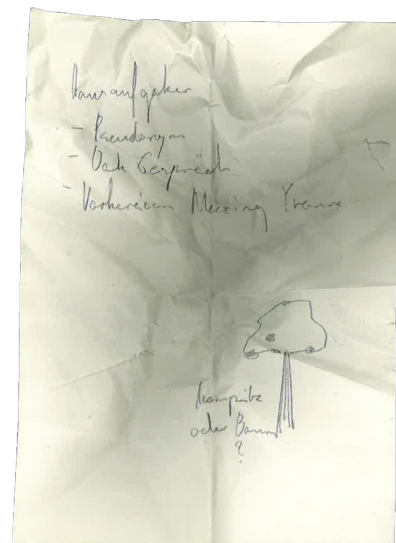 Hausaufgaben
- Pseudonym
- Dank Gespräch
- Vorbereiten Meeting Yvonne
oder Baum
?